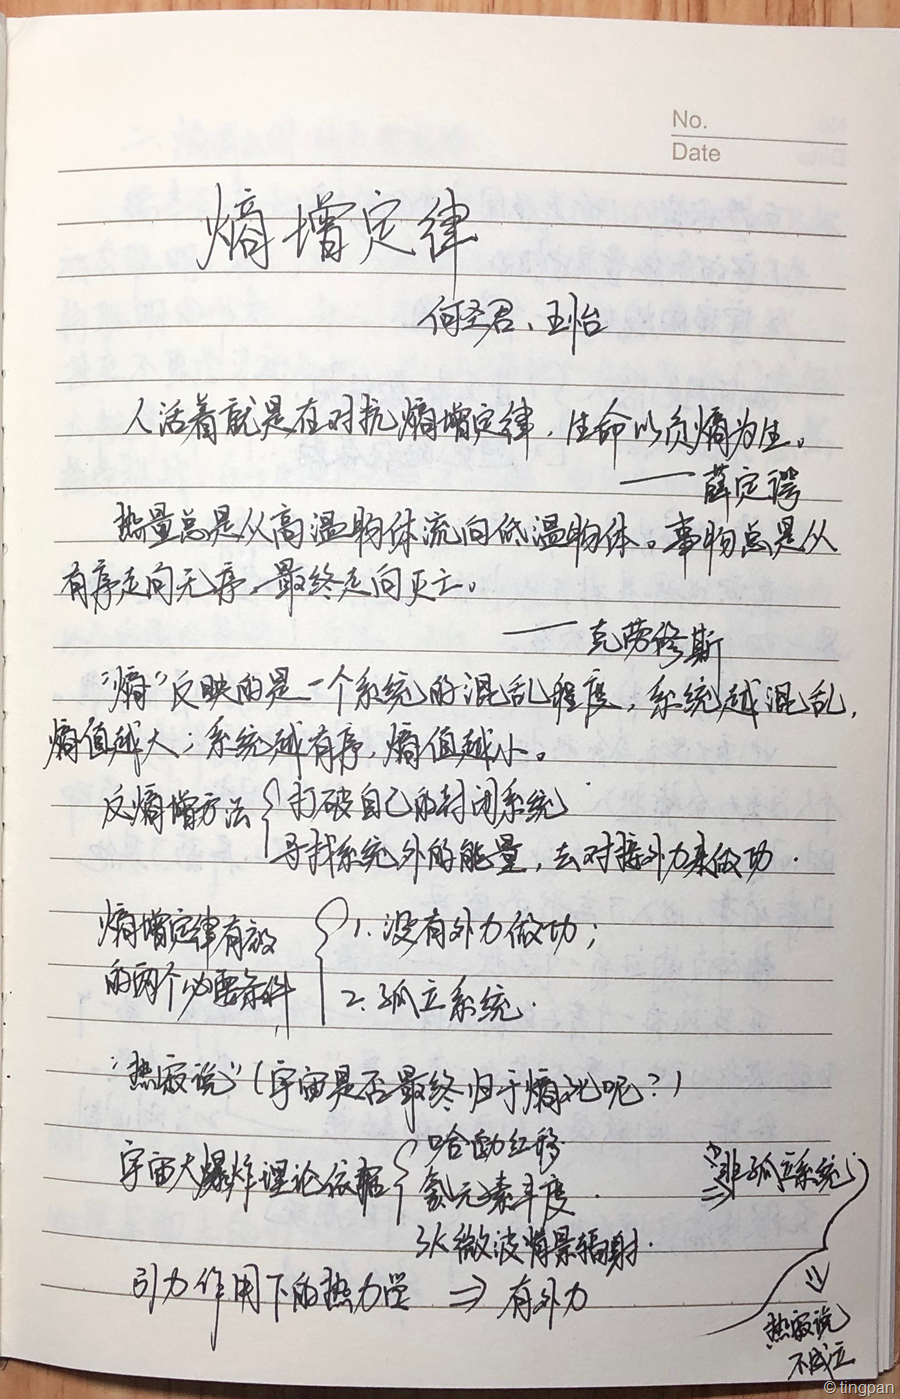 No.
Date
熵增定律
何圣君、王怡
人活着就是在对抗熵增定律，生命以负熵为生。
——薛定谔
热量总是从高温物体流向低温物体。事物总是从
有序走向无序，最终走向灭亡。
——克劳修斯
“熵”反映的是一个系统的混乱程度，系统越混乱，
熵值越大；系统越有序，熵值越小。
反熵增方法 打破自己的封闭系统
寻找系统外的能量，去对接外力来做功.
熵增定律有效 1. 没有外力做功；
的两个必要条件 2. 孤立系统.
“热寂说”（宇宙是否最终归于熵死呢？）
哈勃红移
宇宙大爆炸理论依据 氦元素丰度. ⇒非孤立系统
3K微波背景辐射.
引力作用下的热力学 ⇒ 有外力
⇓
热寂说
不成立
© tingpan